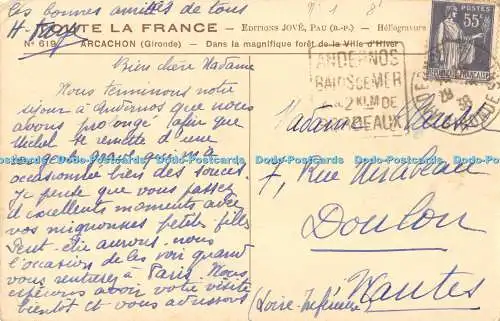 Les bonnes amitiés de tous
TOUTE LA FRANCE — EDITIONS JOVÉ, PAU (B.-P.) — Héliogravure
N° 619 ARCACHON (Gironde) - Dans la magnifique forêt de la Ville d'Hiver
POSTES
55c
ANDERNOS
BAINS DE MER
42 KLM DE
BORDEAUX
Bien chère Madame
Nous terminons notre
séjour à Andernos que nous
avons prolongé afin que
Michel se remette d'une
rougeole qui
occasionné bien des soucis.
Je pense que vous passez
d'excellents moments avec
vos mignonnes petites filles
Peut-être aurons-nous
l'occasion de les voir quand
vous rentrerez à Paris. Nous
espérons avoir votre visite
bientôt et vous adressons
Madame
7, Rue Mirabeau
Doulon
Nantes
(Loire-Inférieure)